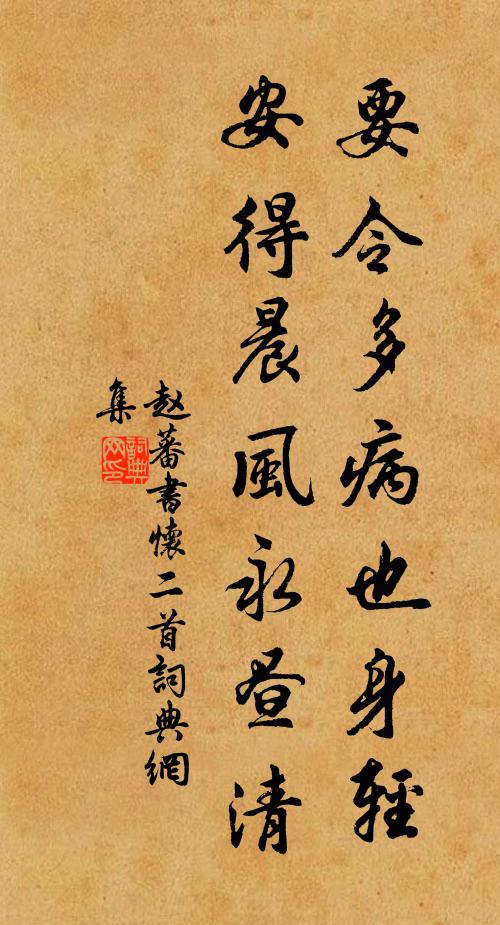 要令多病也身輕
安得晨風永昼清
赵蕃書懷二首詞典網
集
詞典网印